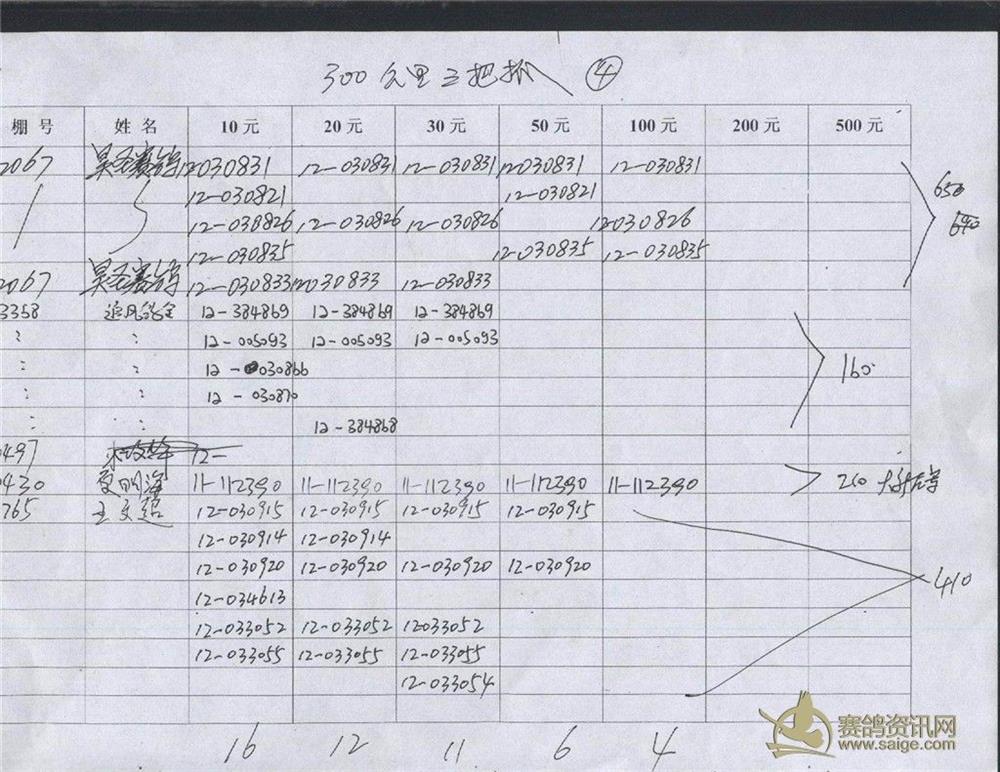 300公里三把抓 ④
棚号 姓名 10元 20元 30元 50元 100元 200元 500元
2067 昊圣赛鸽 12-030831 12-030831 12-030831 12-030831 12-030831
12-030821 12-030821
12-030826 12-030826 12-030826 12-030826
12-030835 12-030835 12-030835
650
640
2067 昊圣赛鸽 12-030833 12-030833 12-030833
3358 追风 12-384869 12-384869 12-384869
: : 12-005093 12-005093 12-005093
: : 12-030866
160
: : 12-030870
: : 12-384868
0497 12-
0430 夏明海 11-112390 11-112390 11-112390 11-112390 11-112390 210
765 王文超 12-030915 12-030915 12-030915 12-030915
12-030914 12-030914
12-030920 12-030920 12-030920 12-030920
410
12-034613
12-033052 12-033052 12033052
12-033055 12-033055 12-033055
12-033054
16 12 11 6 4
赛鸽资讯网
www.saige.com